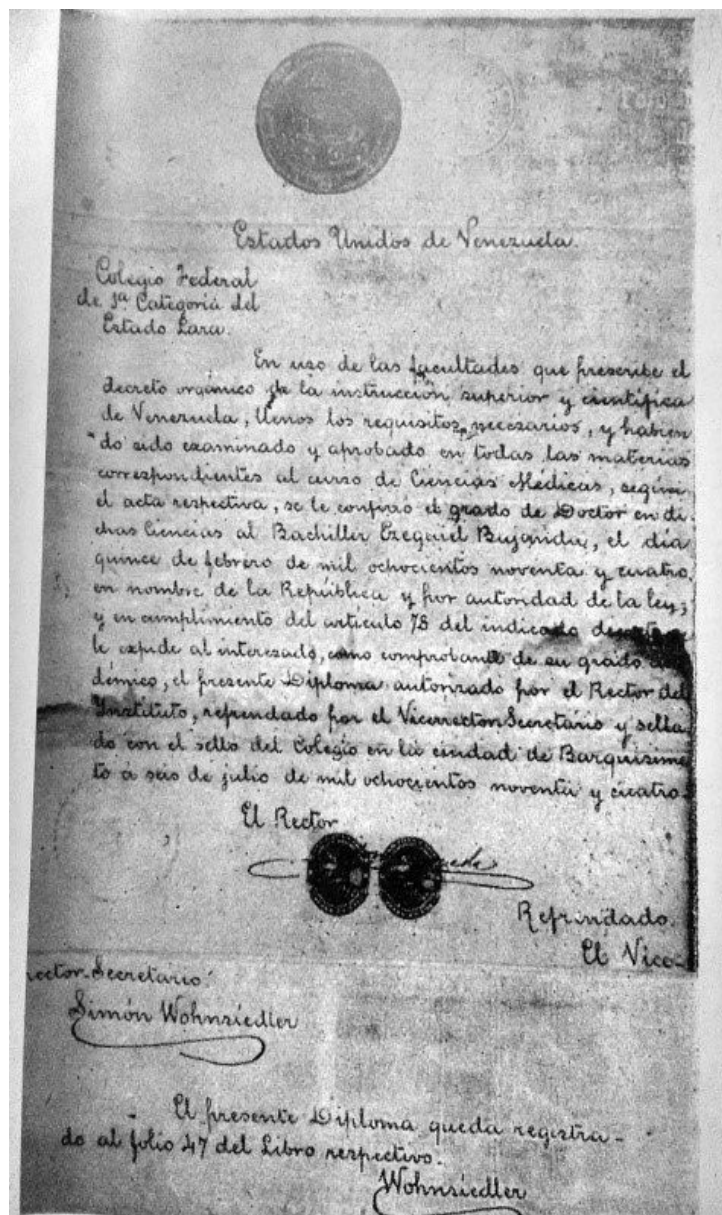 Estados Unidos de Venezuela.
Colegio Federal
de 1ª Categoría del
Estado Lara.
En uso de las facultades que prescribe el
decreto orgánico de la instrucción superior y científica
de Venezuela, llenos los requisitos necesarios, y habien
do sido examinado y aprobado en todas las materias
correspondientes al curso de Ciencias Médicas, según
el acta respectiva, se le confirió el grado de Doctor en di-
chas Ciencias al Bachiller Ezequiel Bujanda, el día
quince de febrero de mil ochocientos noventa y cuatro,
en nombre de la República y por autoridad de la ley;
y en cumplimiento del artículo 78 del indicado
le expide al interesado, como comprobante de su grado
démico, el presente Diploma autorizado por el Rector del
Instituto, refrendado por el Vicerrector Secretario y sella
do con el sello del Colegio en la ciudad de Barquisime
to á seis de julio de mil ochocientos noventa y cuatro.
El Rector
Refrendado.
El Vice-
rector-Secretario.
Simón Wohnsiedler
El presente Diploma queda registra-
do al folio 47 del Libro respectivo.
Wohnsiedler